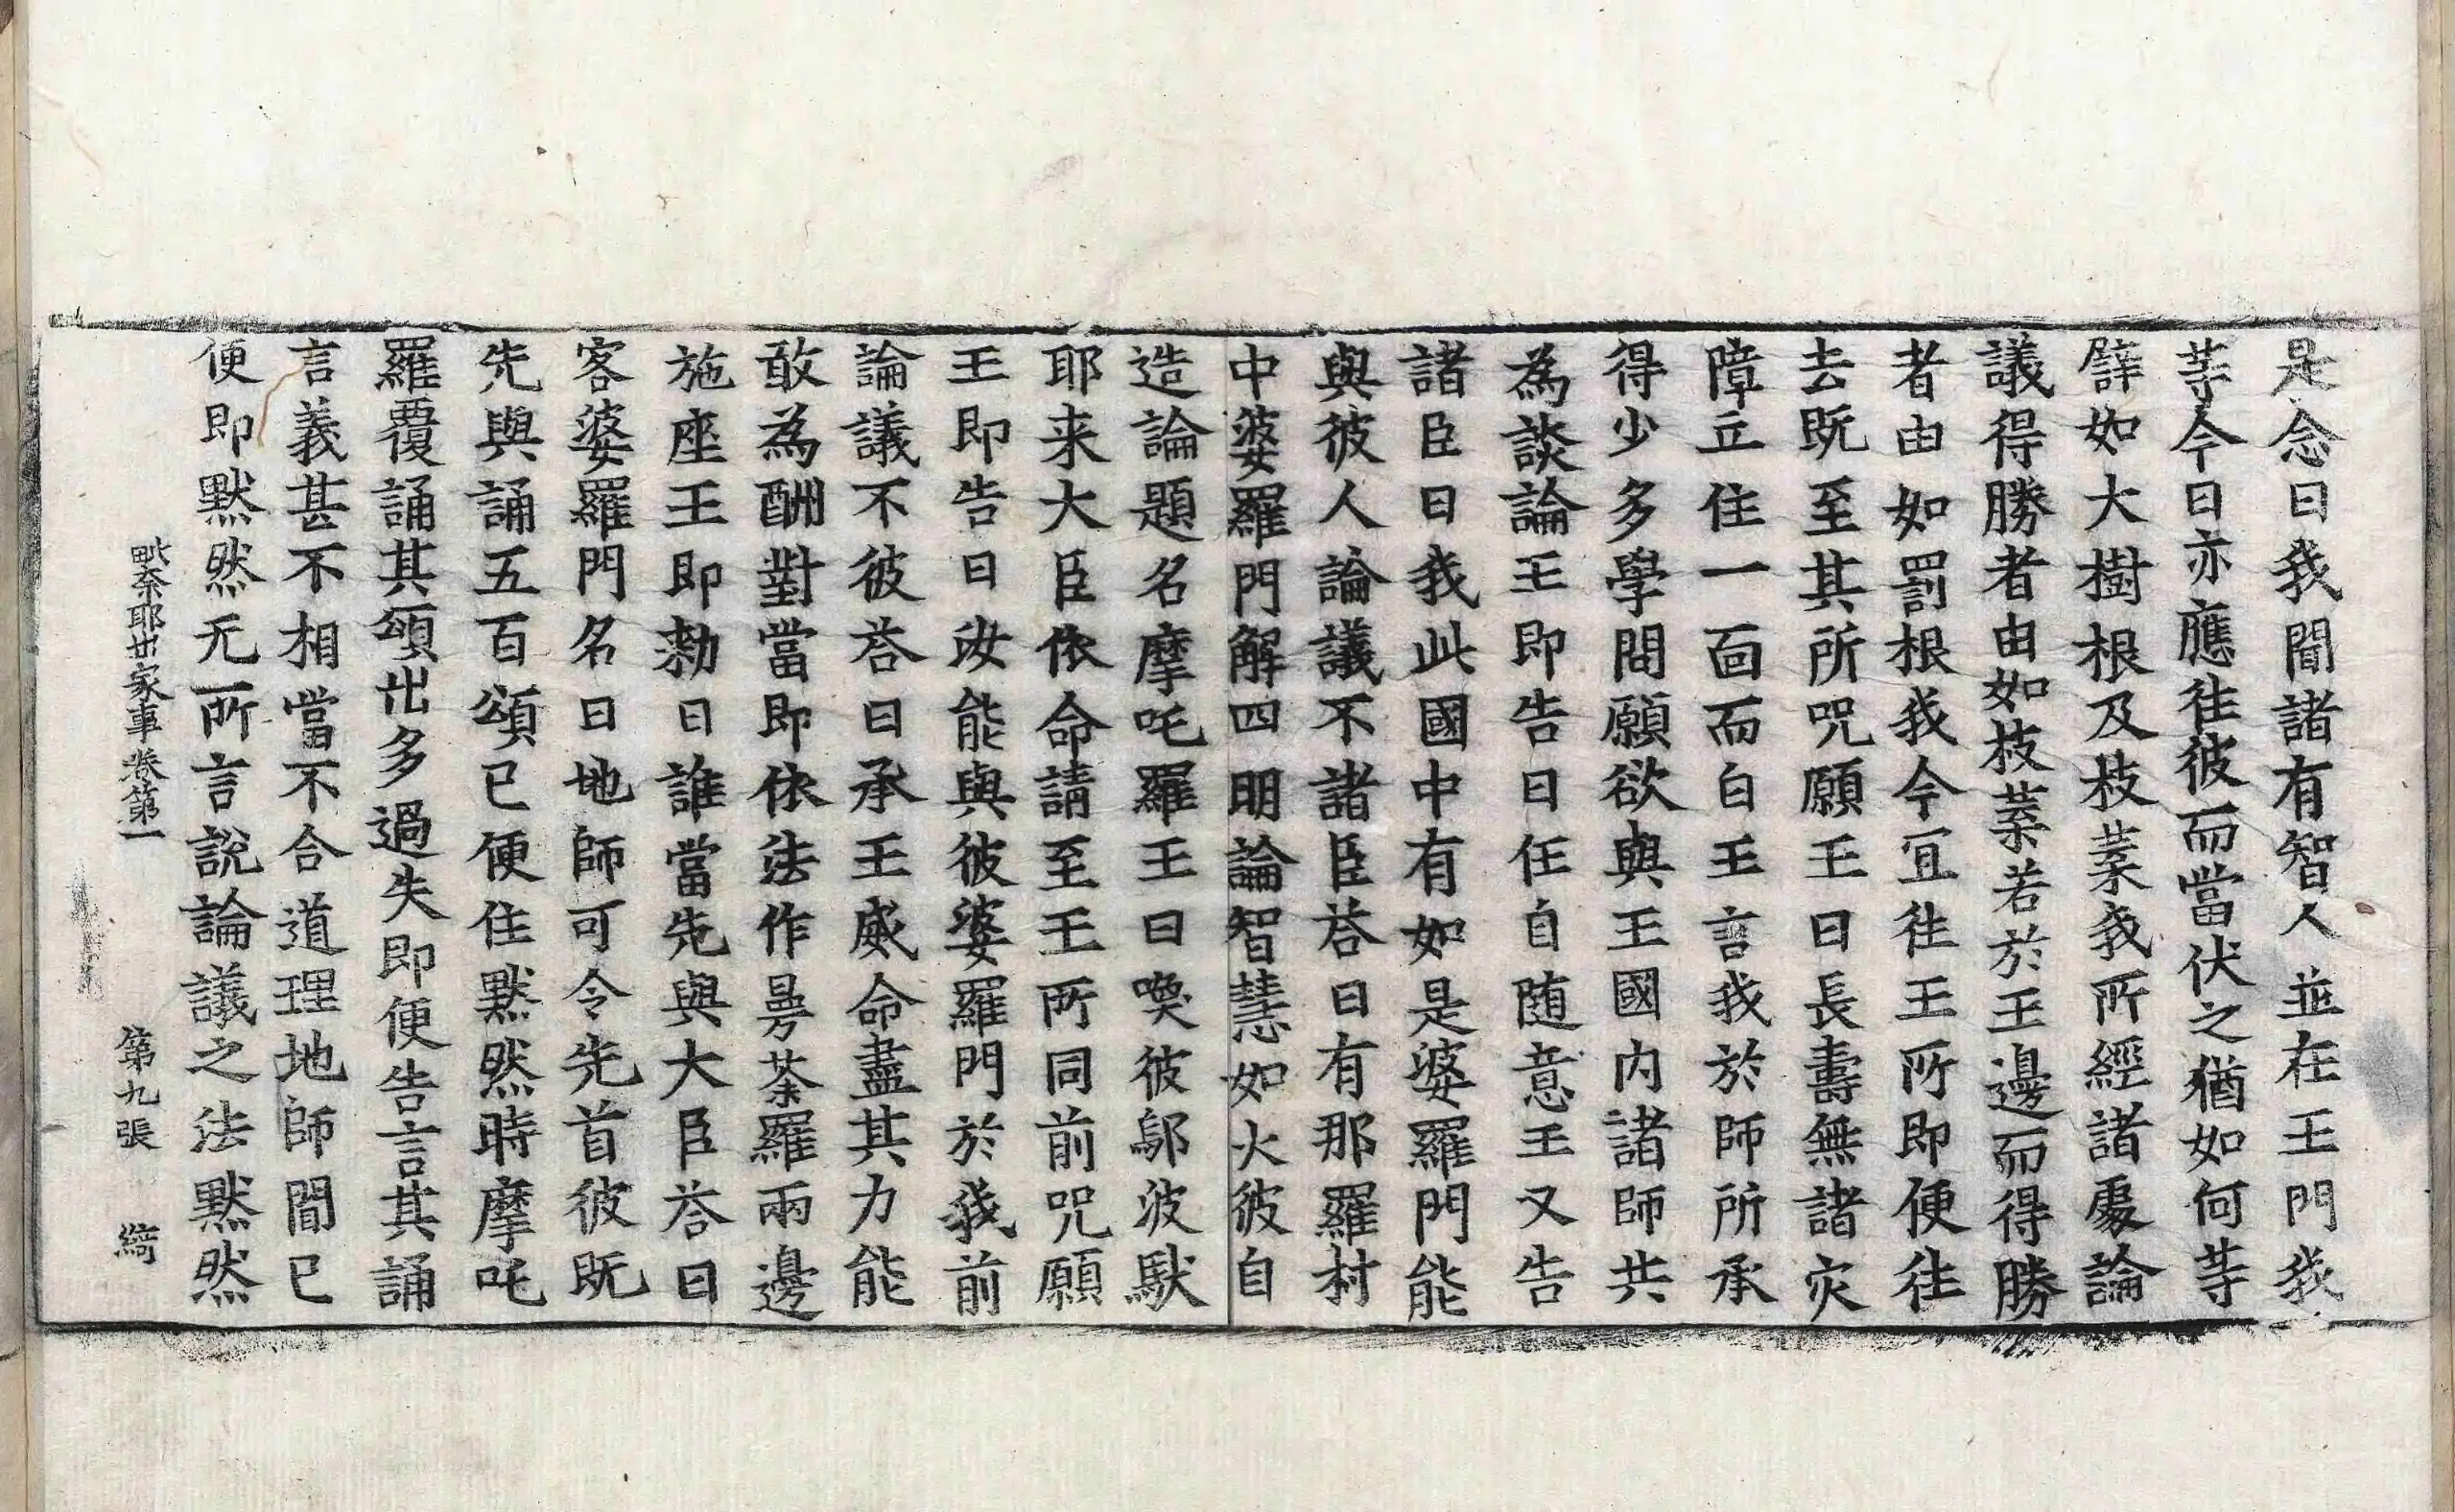 是念曰我聞諸有智人並在王門我
䓁今日亦應往彼而當伏之猶如何䓁
譬如大樹根及枝葉我所經諸處論
議得勝者由如枝葉若於王邊而得勝
者由如罰根我今冝往王所即便往
去既至其所呪願王曰長壽無諸灾
障立住一面而白王言我於師所承
得少多學問願欲與王國内諸師共
為談論王即告曰任自随意王又告
諸臣曰我此國中有如是婆羅門能
與彼人論議不諸臣荅曰有那羅村
中婆羅門解四明論智慧如火彼自
造論題名摩吒羅王曰喚彼鄔波馱
耶来大臣依命請至王所同前呪願
王即告曰汝能與彼婆羅門於我前
論議不彼荅曰承王威命盡其力能
敢為酬對當即依法作曼荼羅兩邊
施座王即勑曰誰當先與大臣荅曰
客婆羅門名曰地師可令先首彼既
先與誦五百頌已便住默然時摩吒
羅覆誦其頌出多過失即便告言其誦
言義甚不相當不合道理地師聞已
便即默然无所言說論議之法默然
毗奈耶出家事卷第一 第九張 綺